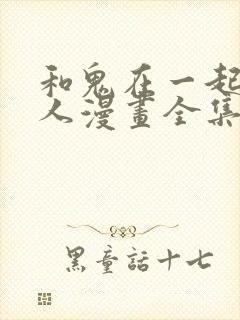 和鬼在一起
人漫畫全集
黑童話十七